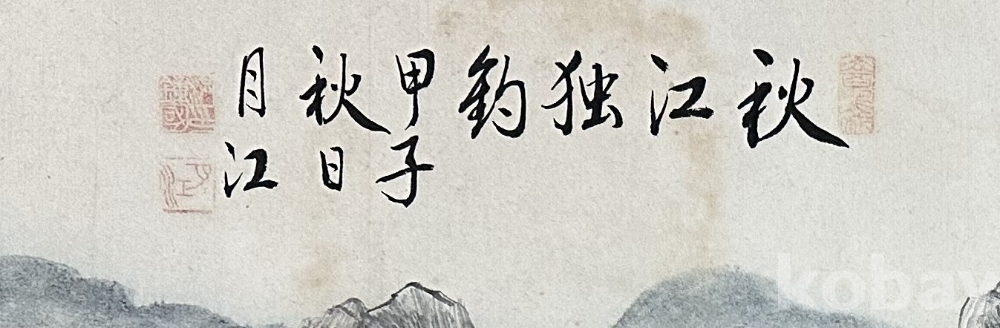 秋江独釣
甲子
秋日
月江
kobay